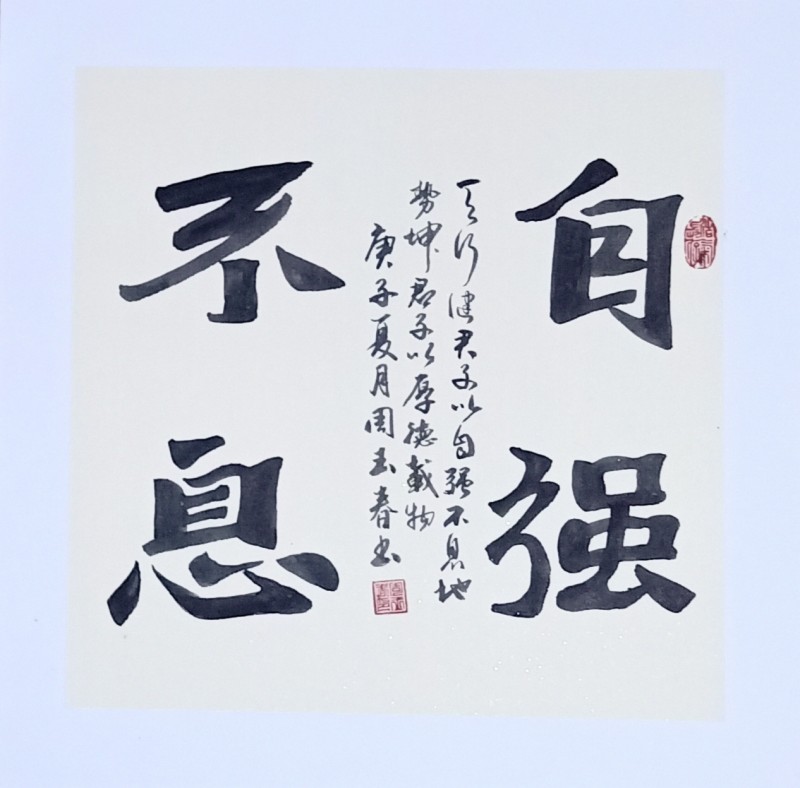 自强
不息
天行健君子以自强不息地
势坤君子以厚德载物
庚子夏月周玉春书